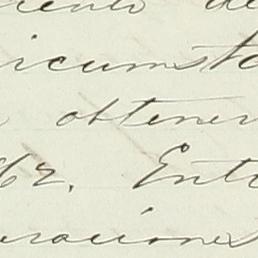 iento de
ircumsta
obtener
Ent
raciones